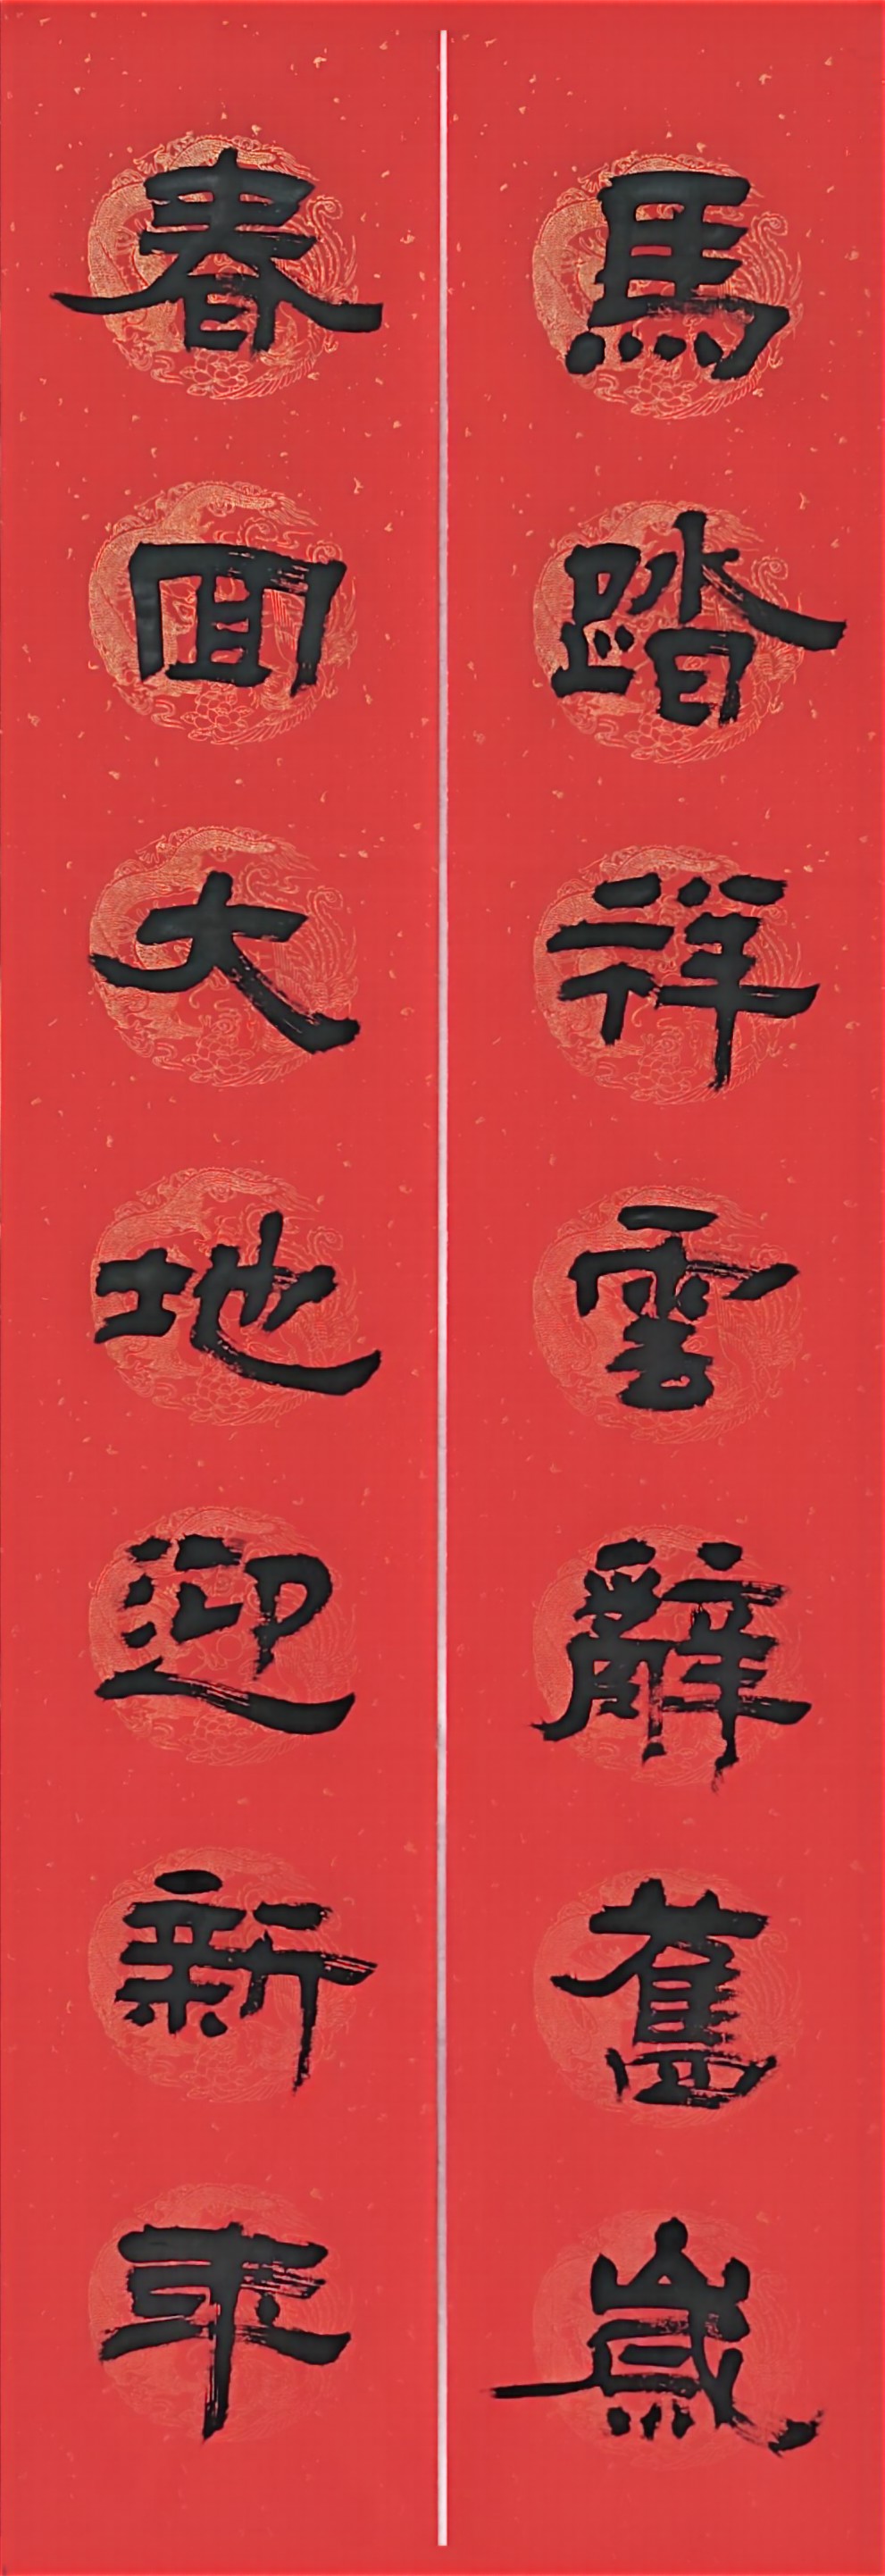 馬踏祥雲辭舊歲
春回大地迎新年